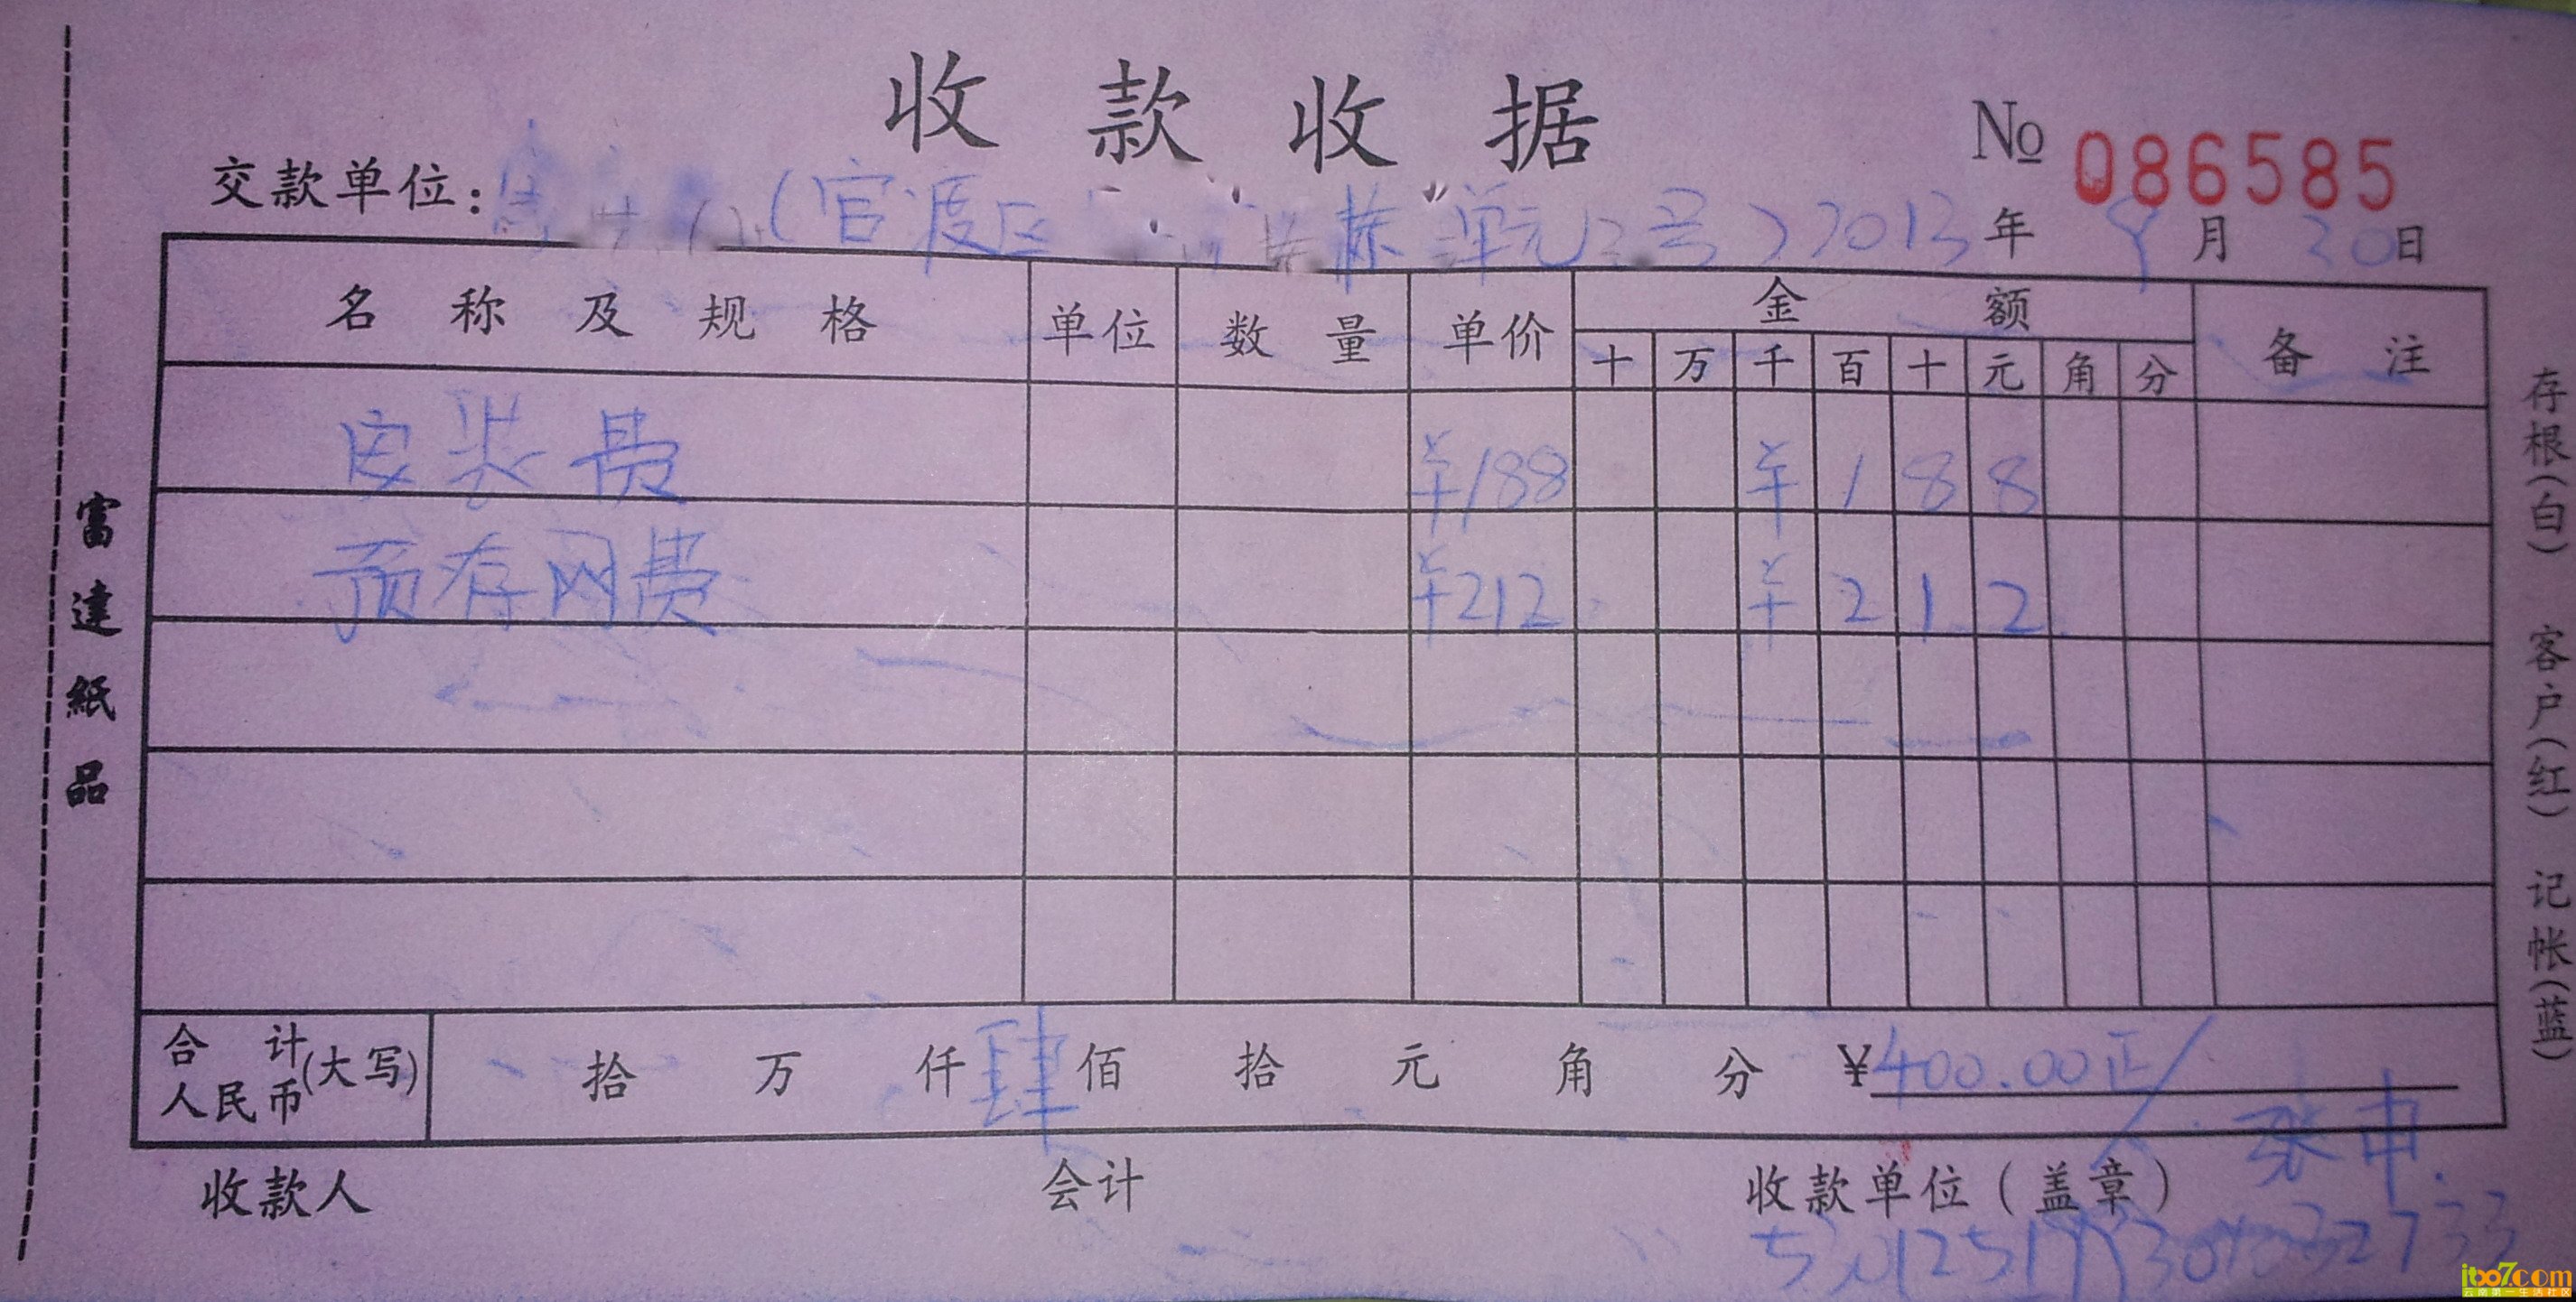 收款收据
No 086585
交款单位: (官渡区 栋 单元 号) 2013年9月30日
名称及规格 单位 数量 单价 金额 备注
十 万 千 百 十 元 角 分
安装费 ¥188 ¥ 1 8 8
预存网费 ¥212 ¥ 2 1 2
合计人民币(大写) 拾 万 仟肆佰 拾 元 角 分 ¥400.00正
收款人 会计 收款单位(盖章) 张申
富達紙品
存根(白) 客户(红) 记帐(蓝)
itoo7.com
云南第一生活社区